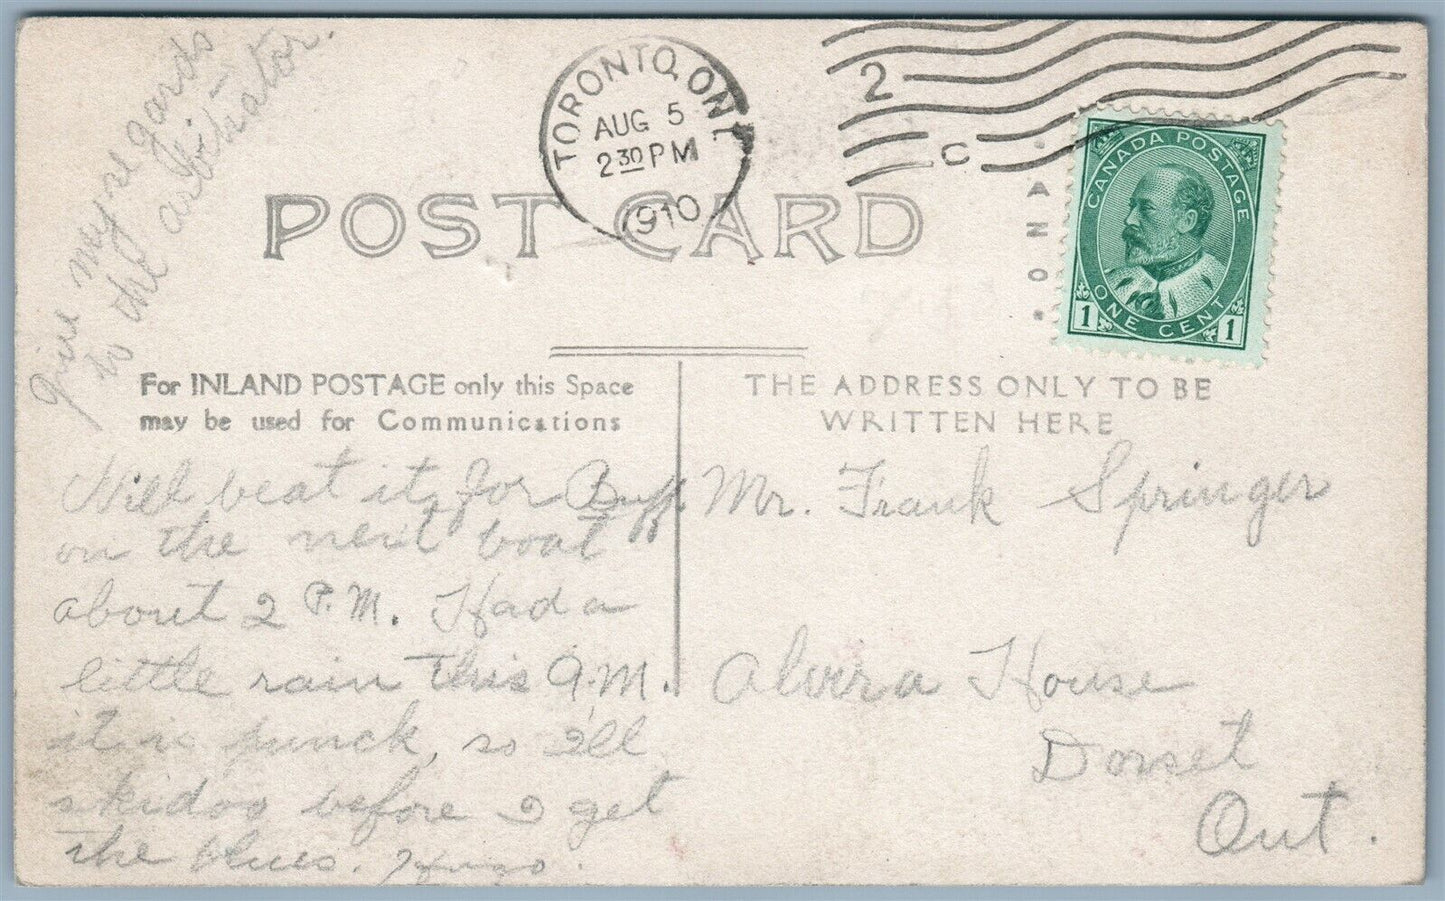 Give my regards
to the arbitrator.
TORONTO, ONT
AUG 5
2 30 PM
1910
2 C
CANADA POSTAGE
ONE CENT
1 1
POST CARD
For INLAND POSTAGE only this Space
may be used for Communications
THE ADDRESS ONLY TO BE
WRITTEN HERE
Will beat it, for Buff.
on the next boat
about 2 P.M. Had a
little rain this A.M.
it is punck, so I'll
skidoo before I get
the blues. Hugo.
Mr. Frank Springer
Alvira House
Dorset
Ont.